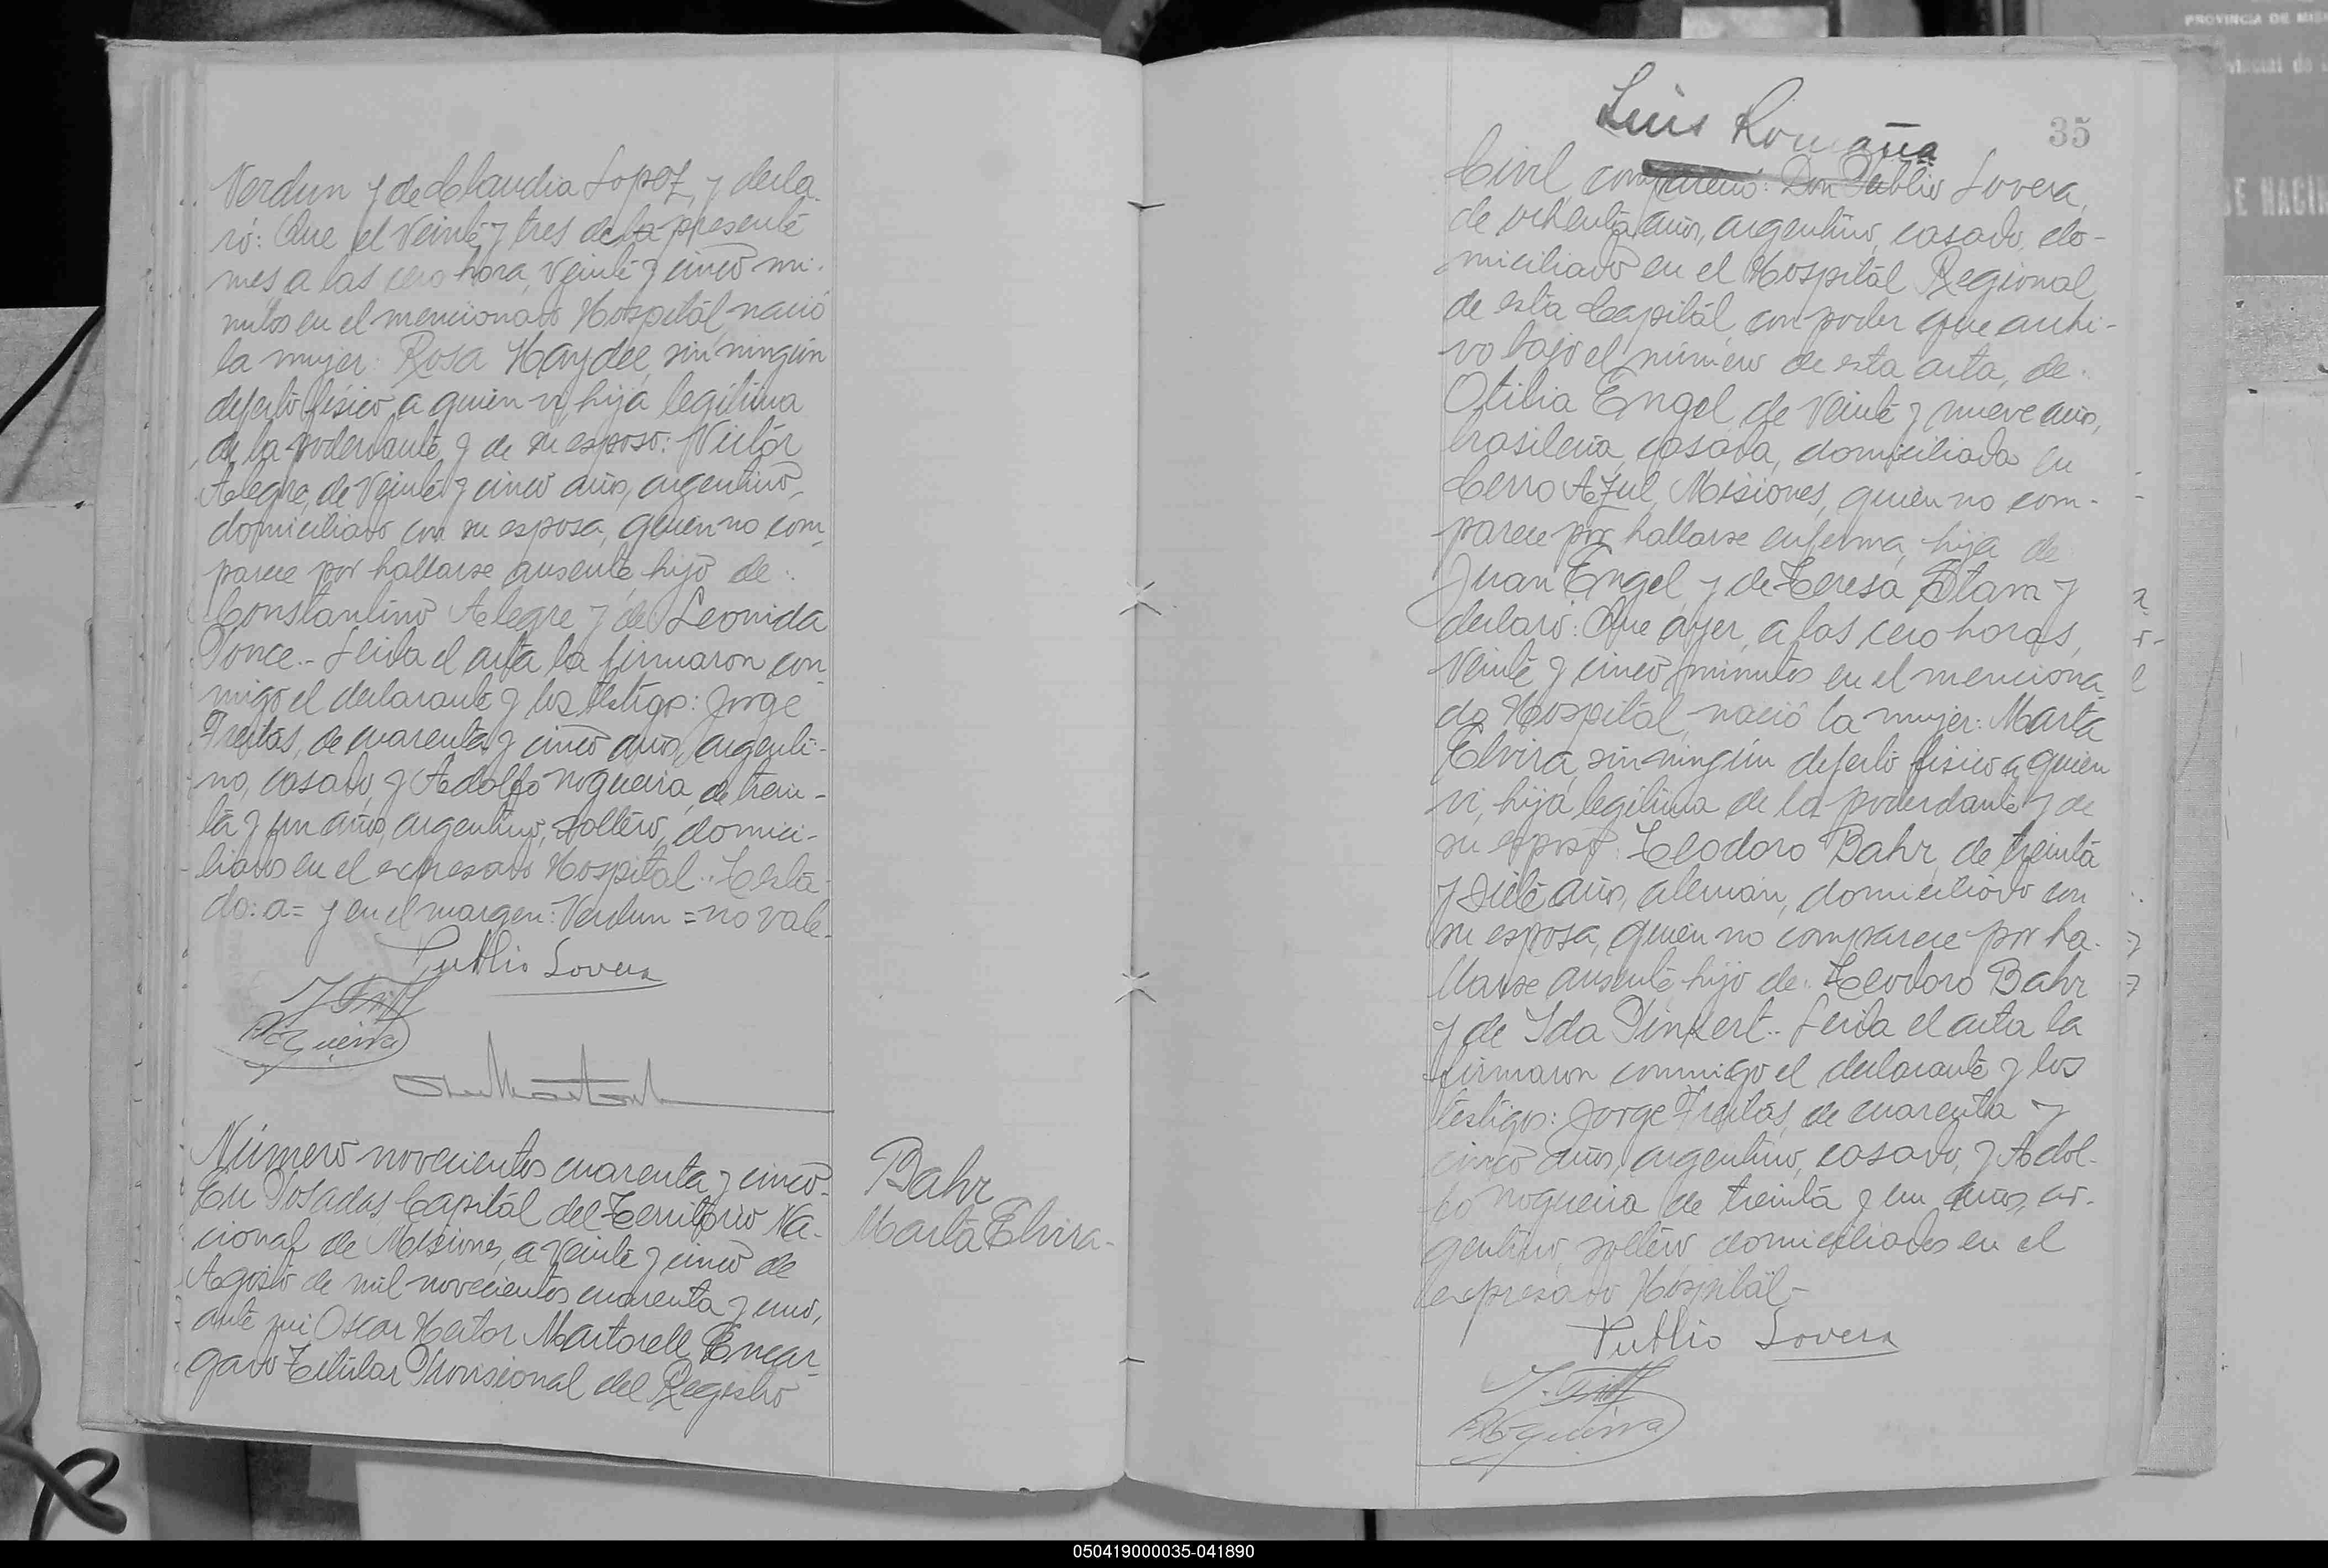 Verdun y de Claudia Lopez, y decla-
ró: Que el veinte y tres de la presente
mes a las cero hora, veinte y cinco mi-
nutos en el mencionado Hospital, nació
la mujer: Rosa Haydee, sin ningún
defecto fisico, a quien vi, hija legítima
de la poderdante y de su esposo: Victor
Alegre, de veinte y cinco años, argentino,
domiciliado con su esposa, quien no com-
parece por hallarse ausente, hijo de:
Constantino Alegre y de Leonida
Ponce.- Leida el acta la firmaron con-
migo el declarante y los testigos: Jorge
Freitas, de cuarenta y cinco años, argenti-
no, casado, y Adolfo Nogueira, de trein-
ta y un años, argentino, soltero, domici-
liados en el expresado Hospital.- Testa-
do: a= y en el margen: Verdun = no vale.
Publio Lovera
Número novecientos cuarenta y cinco-
En Posadas Capital del Territorio Na-
cional de Misiones, a veinte y cinco de
Agosto de mil novecientos cuarenta y uno,
ante mi Oscar Hector Martorell Encar-
gado Titular Provisional del Registro
Bahr
Marta Elvira-
Luis Romaña
35
Civil, compareció: Don Publio Lovera,
de ochenta años, argentino, casado, do-
miciliado en el Hospital Regional
de esta Capital, con poder que archi-
vo bajo el número de esta acta, de:
Otilia Engel, de veinte y nueve años,
brasileña, casada, domiciliada en
Cerro Azul, Misiones, quien no com-
parece por hallarse enferma, hija de
Juan Engel y de Teresa y
declaró: Que ayer, a las cero horas,
veinte y cinco minutos en el menciona-
do Hospital, nació la mujer: Marta
Elvira, sin ningún defecto fisico, a quien
vi, hija legítima de la poderdante y de
su esposo: Teodoro Bahr, de treinta
y siete años, alemán, domiciliado con
su esposa, quien no comparece por ha-
llarse ausente, hijo de: Teodoro Bahr
y de Ida Pinkert.- Leida el acta la
firmaron conmigo el declarante y los
testigos: Jorge Freitas, de cuarenta y
cinco años, argentino, casado, y Adol-
fo Nogueira de treinta y un años, ar-
gentino, soltero domiciliados en el
expresado Hospital-
Publio Lovera
PROVINCIA DE MIS
DE NACIM
050419000035-041890